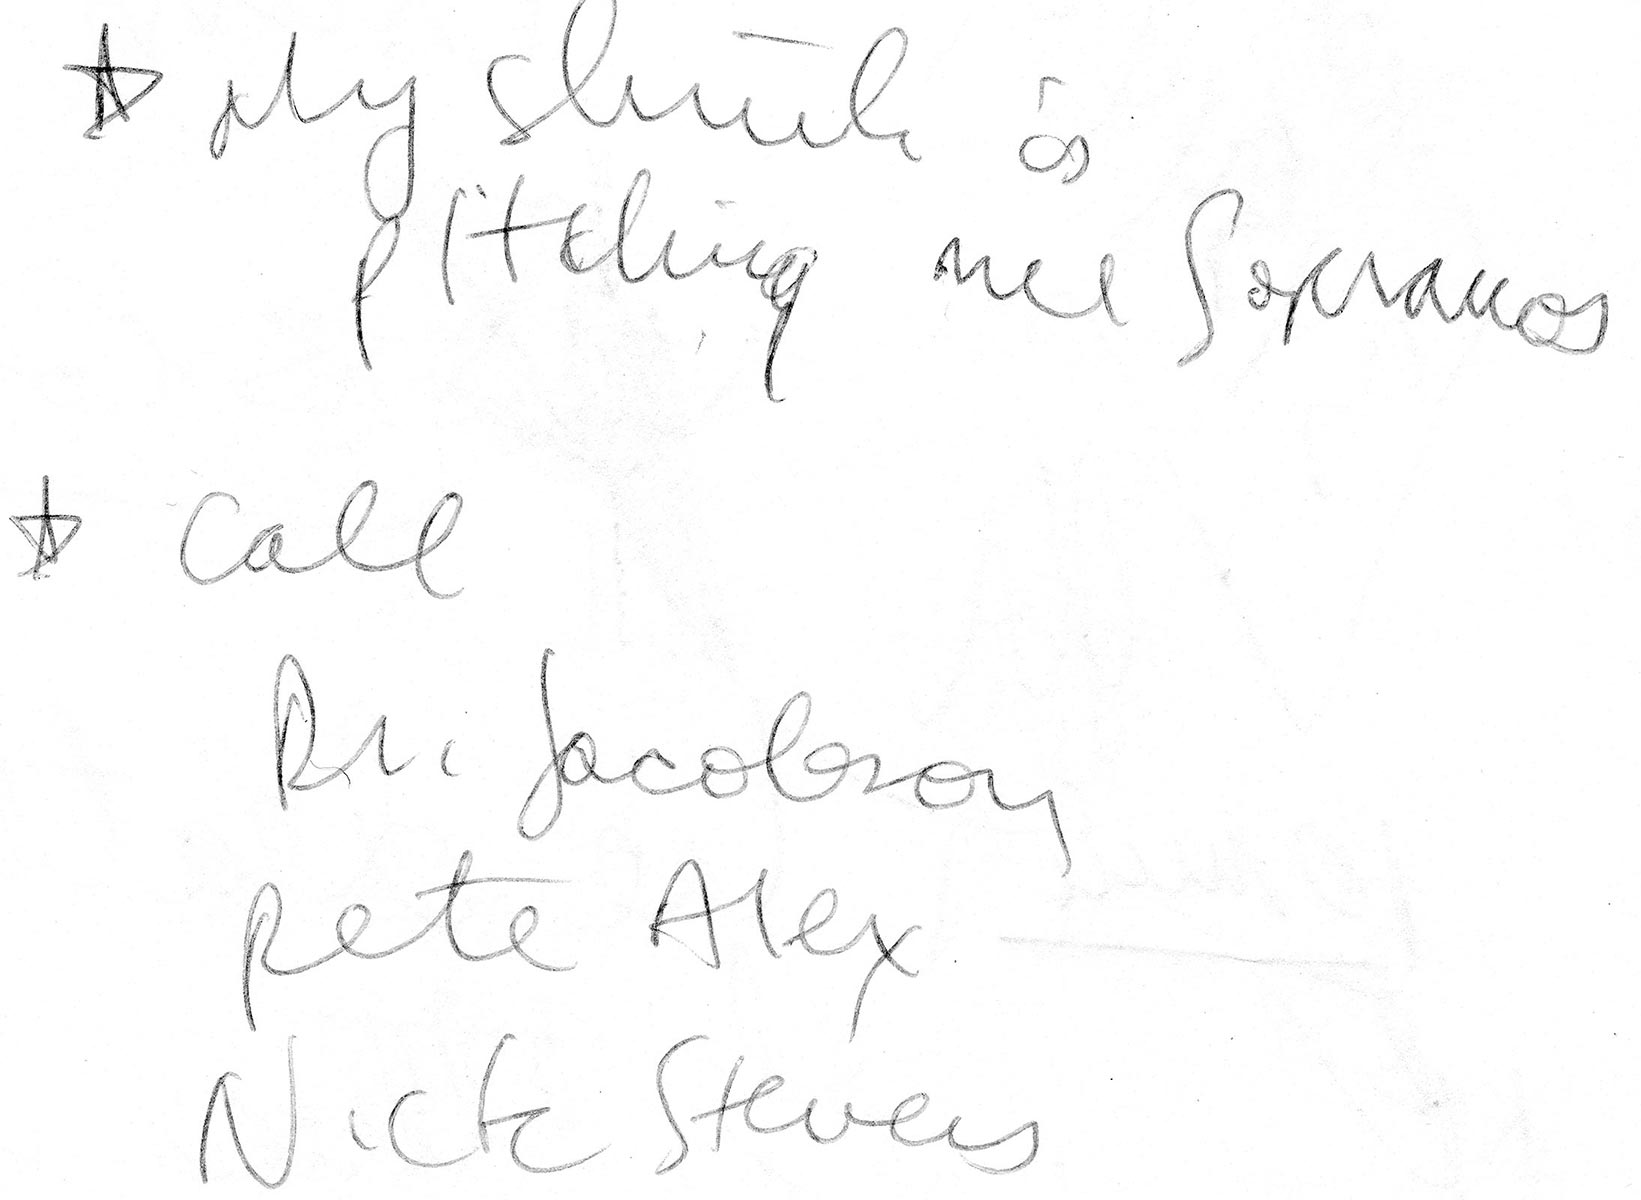 My shrink is
pitching me Sopranos
Call
Dr. Jacobson
Pete Alex
Nick Stevens